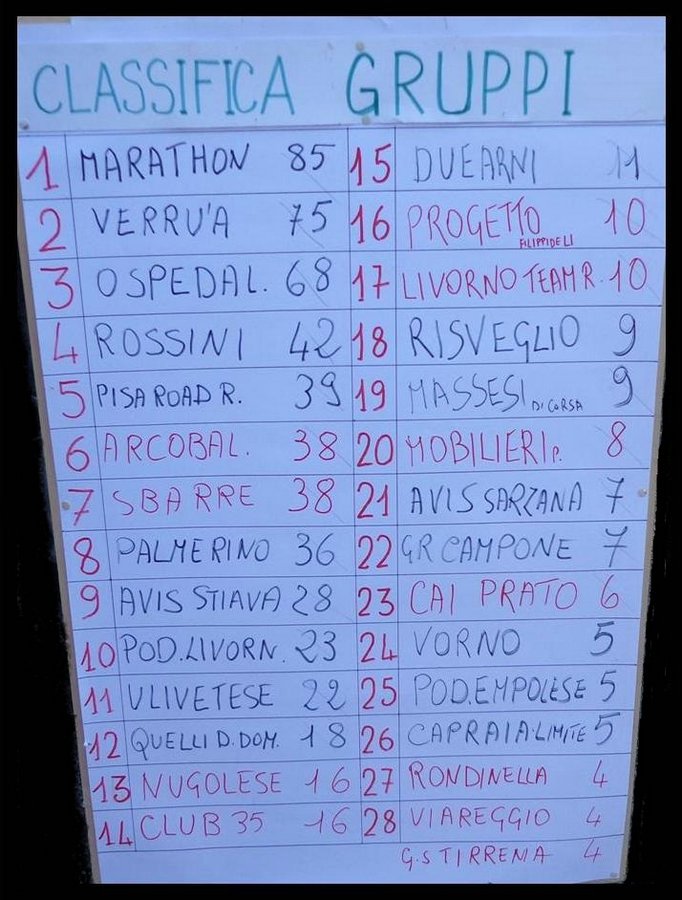 CLASSIFICA GRUPPI
1 MARATHON 85
2 VERRU'A 75
3 OSPEDAL. 68
4 ROSSINI 42
5 PISA ROAD R. 39
6 ARCOBAL. 38
7 SBARRE 38
8 PALMERINO 36
9 AVIS STIAVA 28
10 POD.LIVORN. 23
11 ULIVETESE 22
12 QUELLI D.DOM. 18
13 NUGOLESE 16
14 CLUB 35 16
15 DUEARNI 11
16 PROGETTO 10
FILIPPIDE LI
17 LIVORNO TEAM R. 10
18 RISVEGLIO 9
19 MASSESI DI CORSA 9
20 MOBILIERI P. 8
21 AVIS SARZANA 7
22 GR CAMPONE 7
23 CAI PRATO 6
24 VORNO 5
25 POD.EMPOLESE 5
26 CAPRAIA-LIMITE 5
27 RONDINELLA 4
28 VIAREGGIO 4
G.S TIRRENA 4